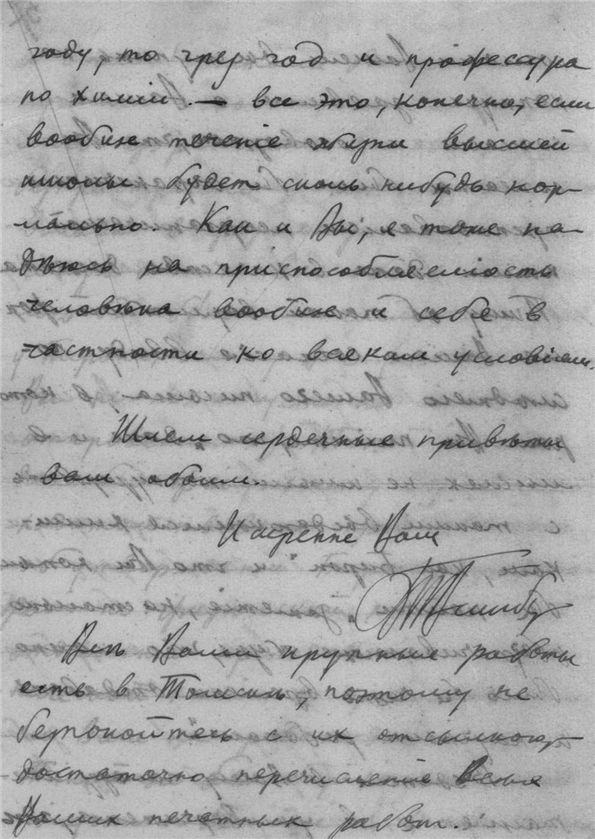 году, то чрез год и профессура
по химіи. — все это, конечно, если
вообще теченіе жизни высшей
школы будет сколь нибудь нор-
мально. Как и Вы, я тоже на-
дѣюсь на приспособляемость
человѣка вообще и себя в
частности ко всяким условіям.
Шлем сердечные привѣты
вам обоим.
Искренне Ваш
Всѣ Ваши крупные работы
есть в Томскѣ, поэтому не
безпокойтесь с их отсылкою,
достаточно перечисленіе всѣх
Ваших печатных работ.